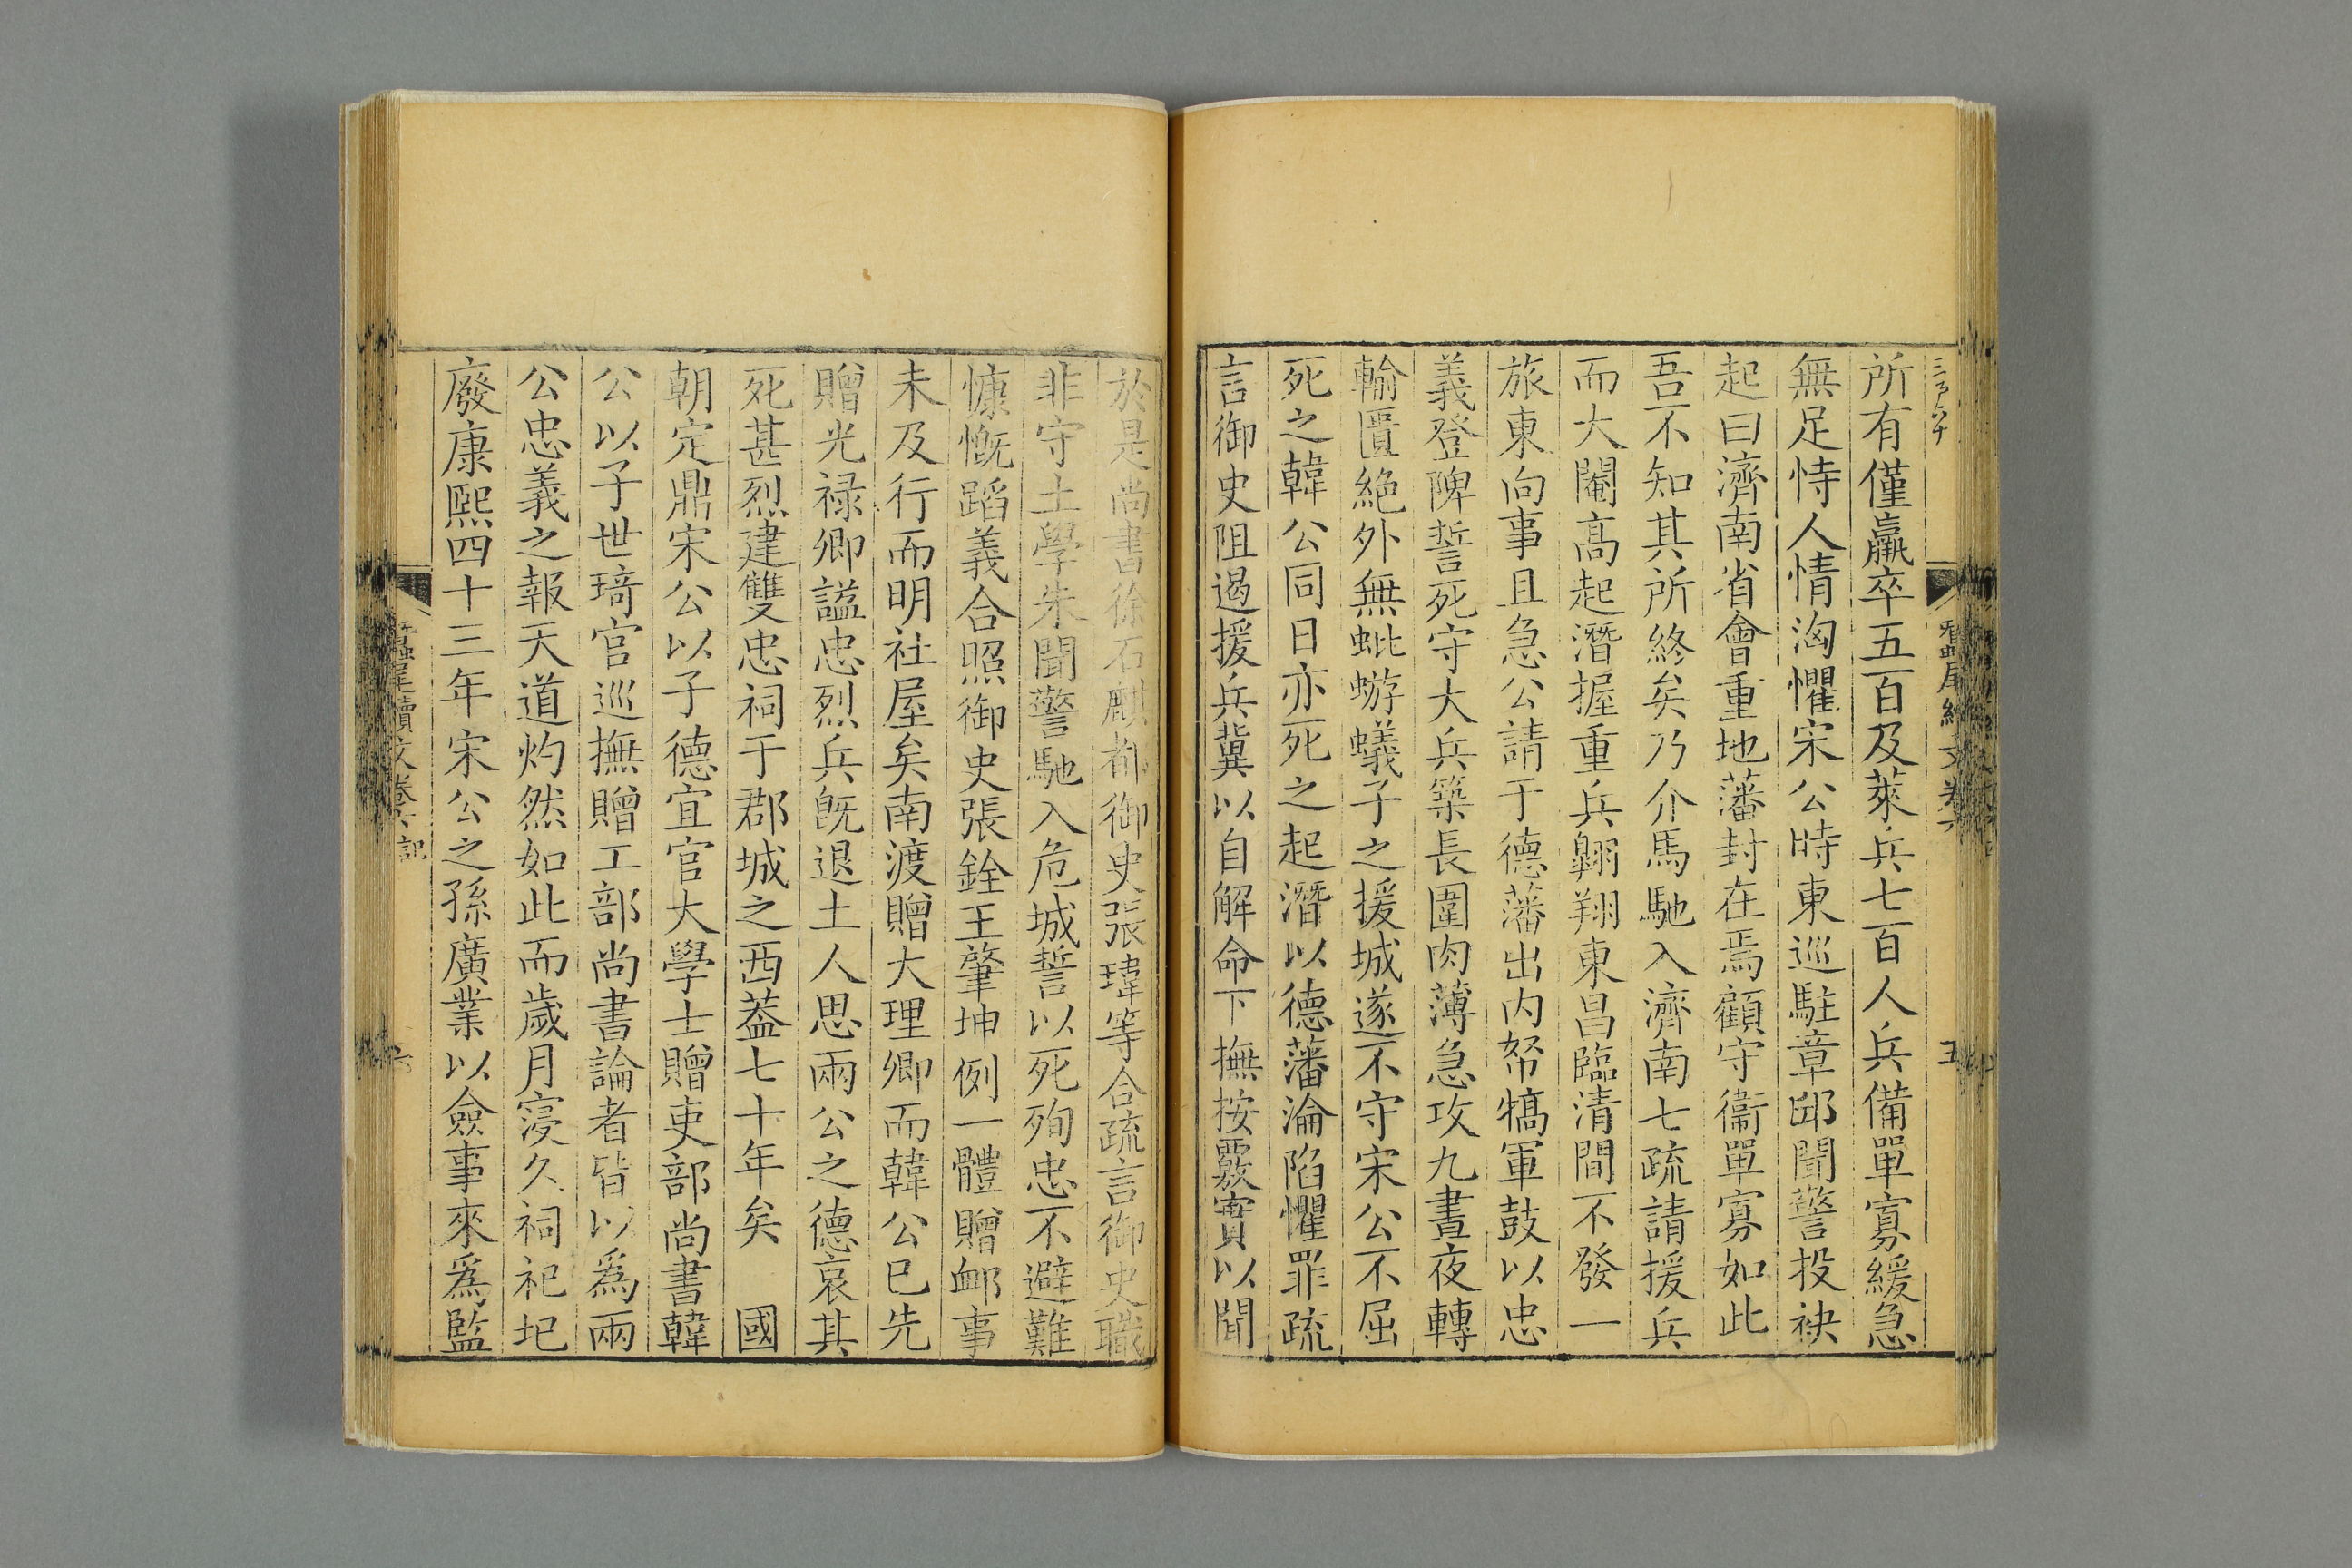 所有僅羸卒五百及萊兵七百人兵備單寡緩急
無足恃人情洶懼宋公時東巡駐章邱聞警投袂
起曰濟南省會重地藩封在焉顧守衞單寡如此
吾不知其所終矣乃介馬馳入濟南七疏請援兵
而大閹高起潛握重兵翺翔東昌臨清間不發一
旅東向事且急公請于德藩出内帑犒軍鼓以忠
義登陴誓死守大兵築長圍肉薄急攻九晝夜轉
輸匱絶外無蚍蝣蟻子之援城遂不守宋公不屈
死之韓公同日亦死之起潛以德藩淪陷懼罪疏
言御史阻遏援兵冀以自解命下撫按覈實以聞
於是尚書徐石麒都御史張瑋等合疏言御史職
非守土學朱聞警馳入危城誓以死殉忠不避難
慷慨蹈義合照御史張銓王肇坤例一體贈䘏事
未及行而明社屋矣南渡贈大理卿而韓公已先
贈光禄卿諡忠烈兵既退土人思兩公之德哀其
死甚烈建雙忠祠于郡城之西葢七十年矣 國
朝定鼎宋公以子德宜官大學士贈吏部尚書韓
公以子世琦官巡撫贈工部尚書論者皆以爲兩
公忠義之報天道灼然如此而歲月寖久祠祀圯
廢康熙四十三年宋公之孫廣業以僉事來爲監
蠶尾續文卷六 記
六